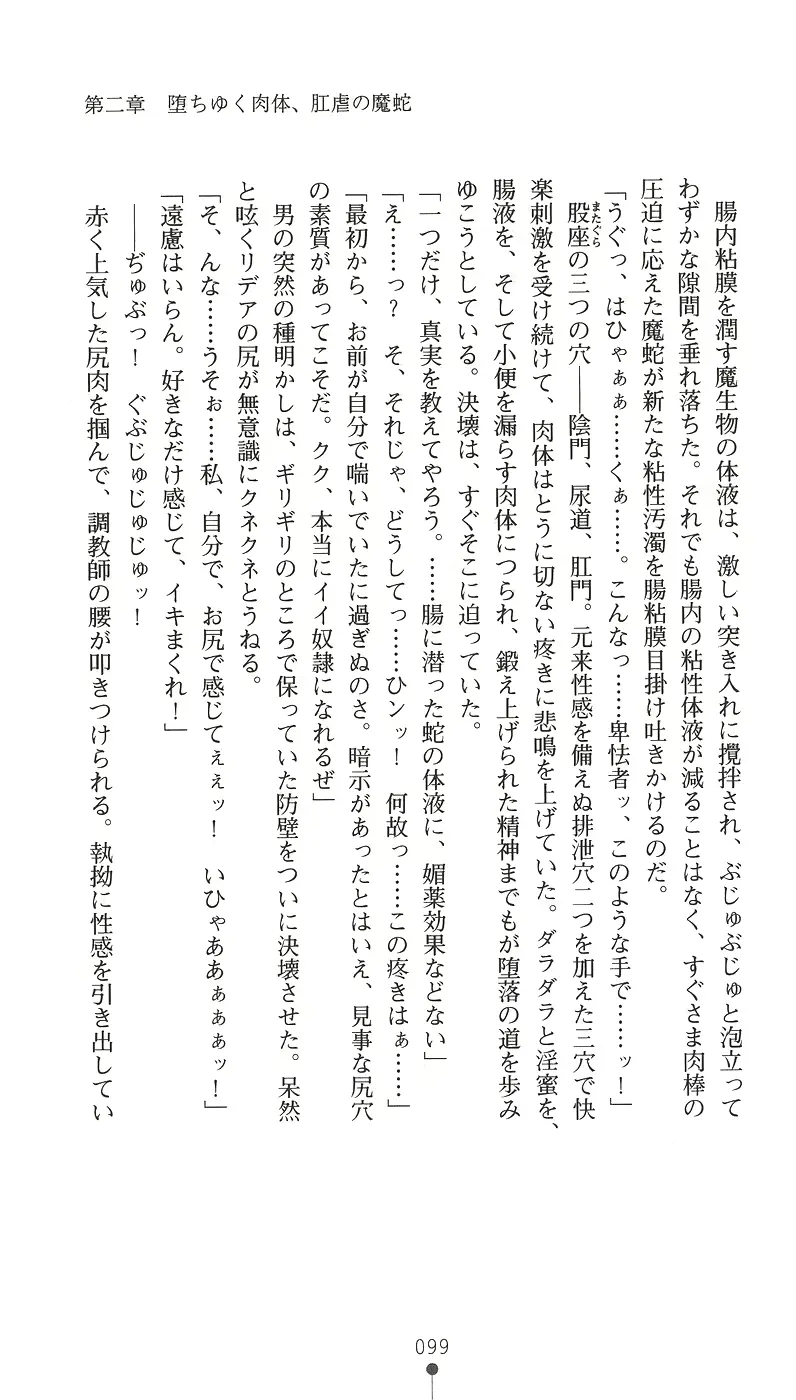 第二章　堕ちゆく肉体、肛虐の魔蛇
　腸内粘膜を潤す魔生物の体液は、激しい突き入れに攪拌され、ぶじゅぶじゅと泡立って
わずかな隙間を垂れ落ちた。それでも腸内の粘性体液が減ることはなく、すぐさま肉棒の
圧迫に応えた魔蛇が新たな粘性汚濁を腸粘膜目掛け吐きかけるのだ。
「うぐっ、はひゃぁぁ……くぁ……。こんなっ……卑怯者ッ、このような手で……ッ！」
　股座またぐらの三つの穴――陰門、尿道、肛門。元来性感を備えぬ排泄穴二つを加えた三穴で快
楽刺激を受け続けて、肉体はとうに切ない疼きに悲鳴を上げていた。ダラダラと淫蜜を、
腸液を、そして小便を漏らす肉体につられ、鍛え上げられた精神までもが堕落の道を歩み
ゆこうとしている。決壊は、すぐそこに迫っていた。
「一つだけ、真実を教えてやろう。……腸に潜った蛇の体液に、媚薬効果などない」
「え……っ？　そ、それじゃ、どうしてっ……ひンッ！　何故っ……この疼きはぁ……」
「最初から、お前が自分で喘いでいたに過ぎぬのさ。暗示があったとはいえ、見事な尻穴
の素質があってこそだ。クク、本当にイイ奴隷になれるぜ」
　男の突然の種明かしは、ギリギリのところで保っていた防壁をついに決壊させた。呆然
と呟くリデアの尻が無意識にクネクネとうねる。
「そ、んな……うそぉ……私、自分で、お尻で感じてぇぇッ！　いひゃああぁぁぁッ！」
「遠慮はいらん。好きなだけ感じて、イキまくれ！」
　――ぢゅぶっ！　ぐぶじゅじゅじゅッ！
　赤く上気した尻肉を掴んで、調教師の腰が叩きつけられる。執拗に性感を引き出してい
099